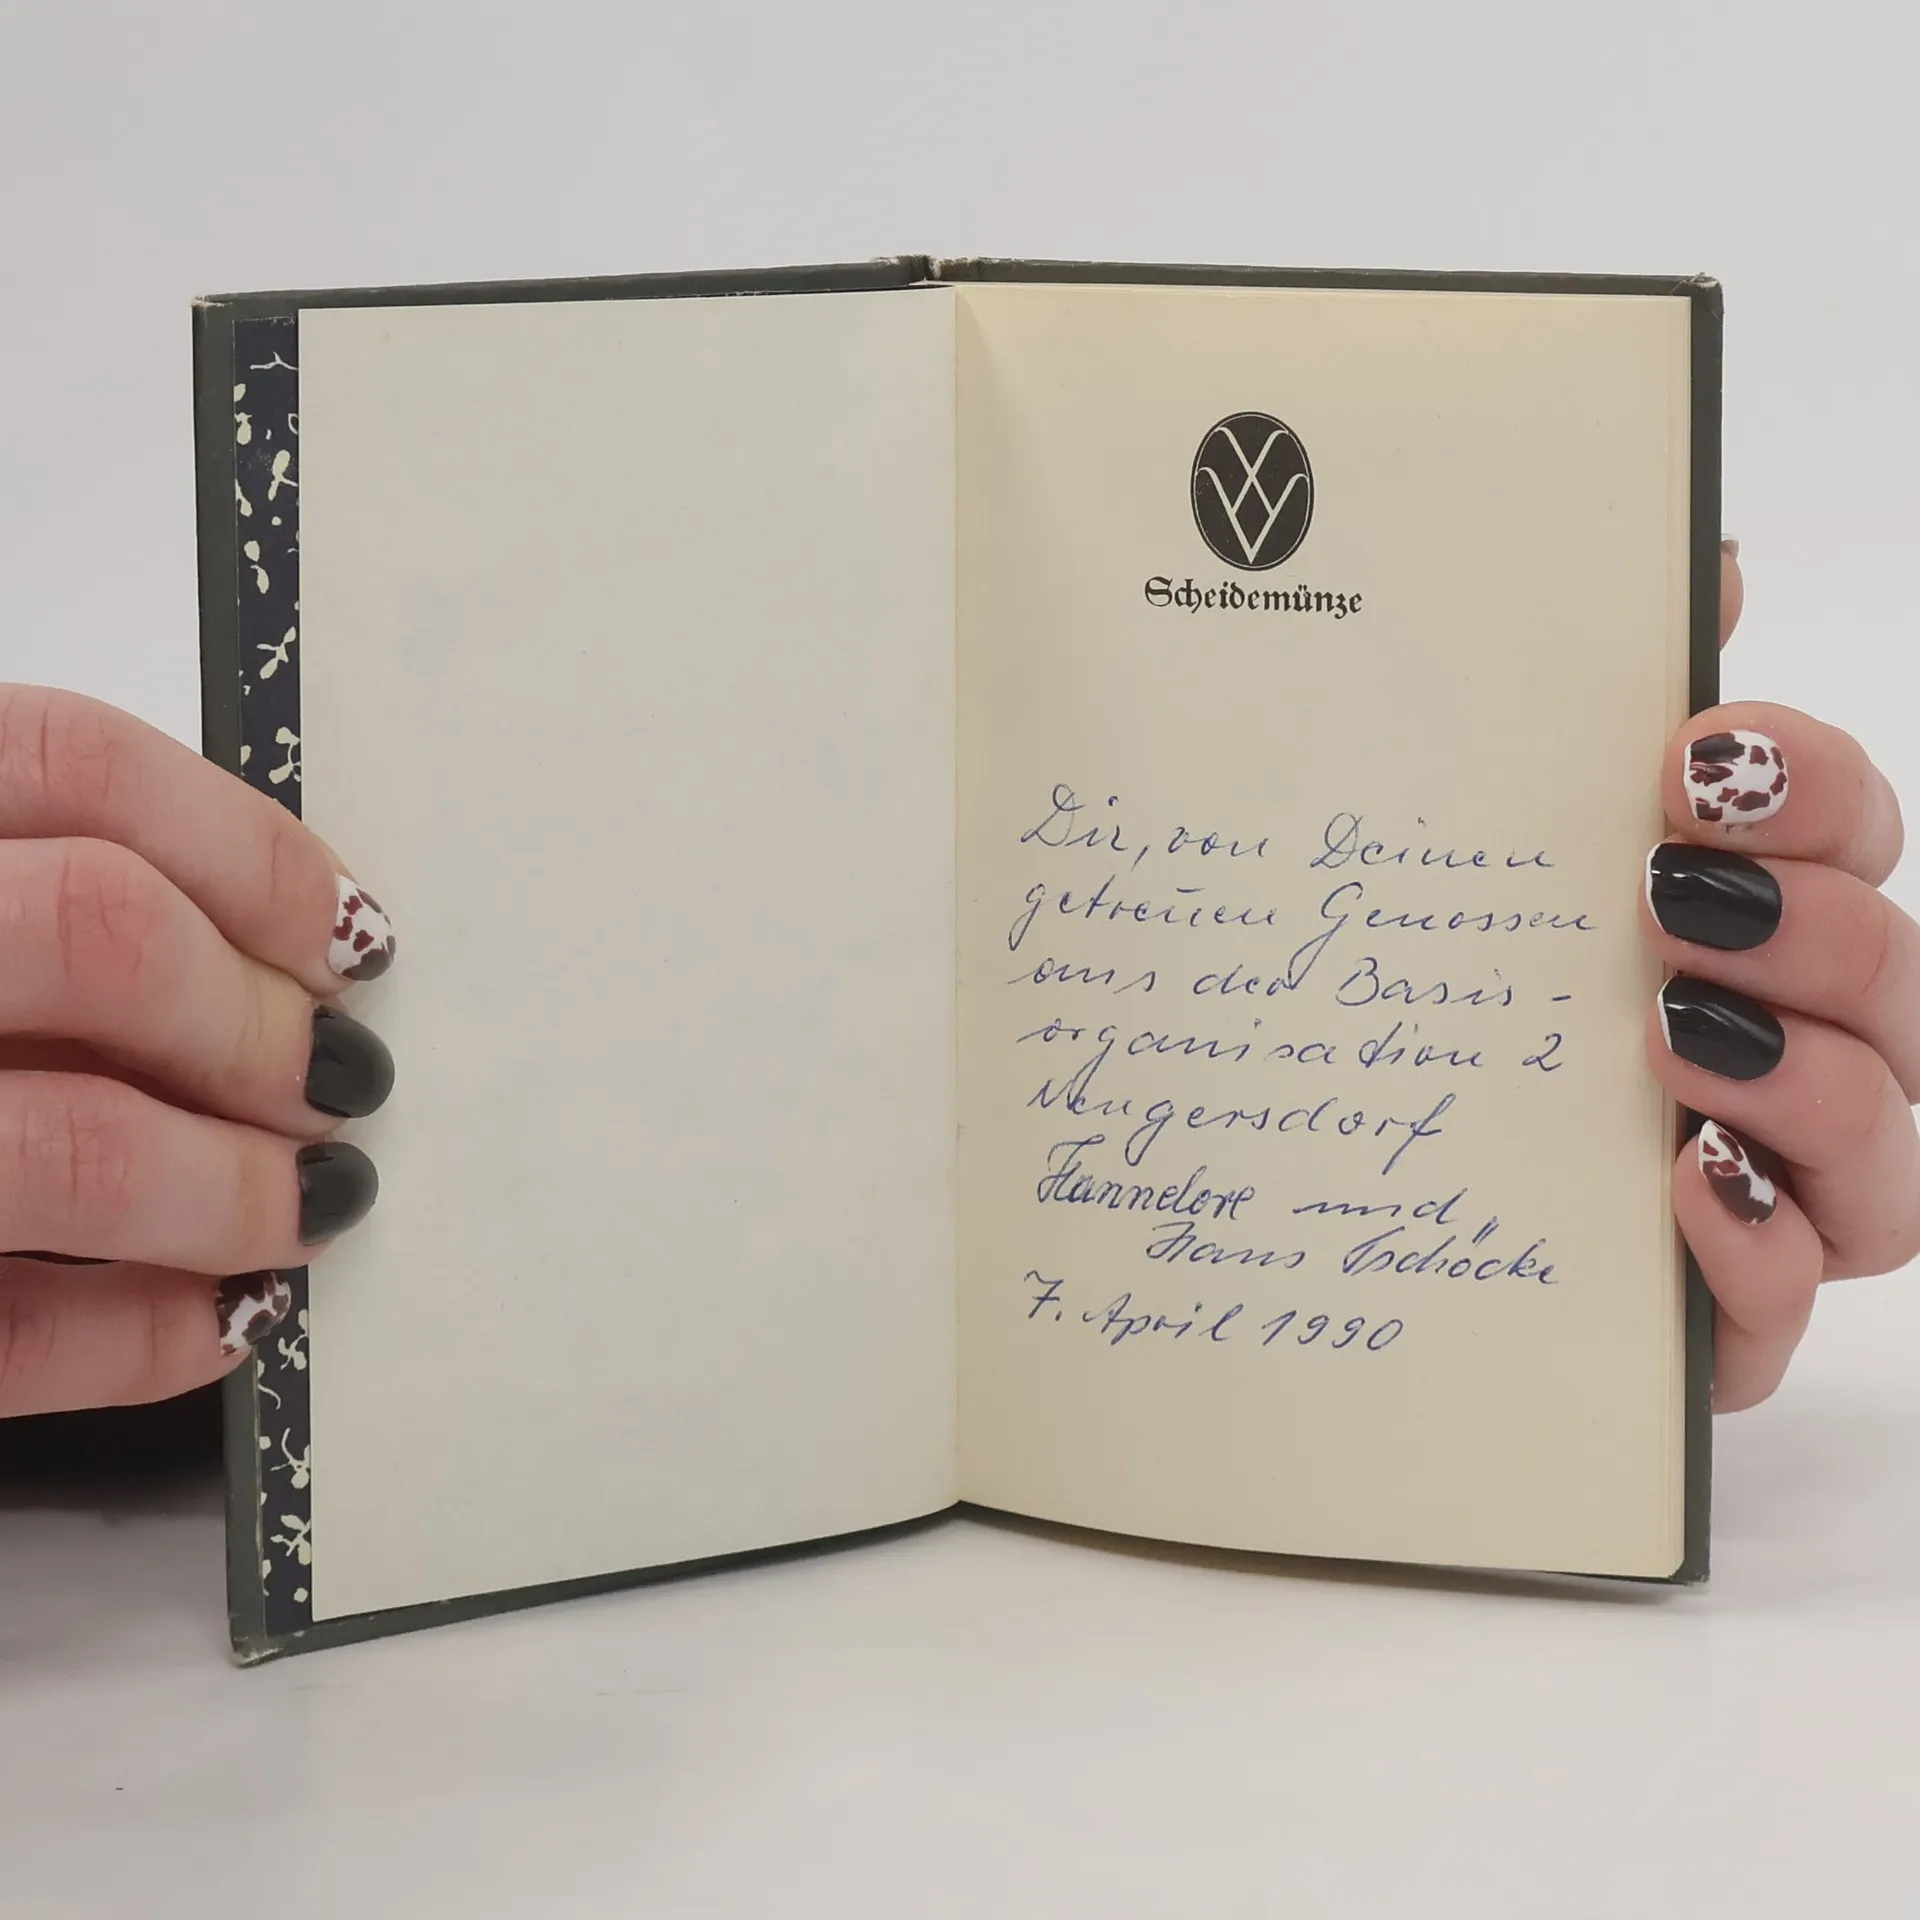 Scheidemünze
Dir, von Deinen
getreuen Genossen
aus der Basis-
organisation 2
Neugersdorf
Hannelore und
Hans Tschöcke
7. April 1990